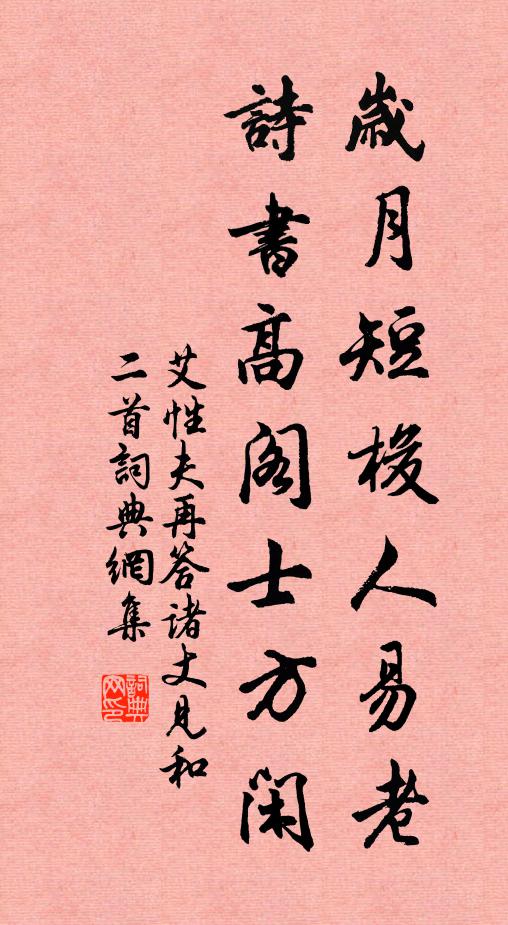 歲月短梭人易老
詩書高閣士方閑
艾性夫再答諸丈見和
二首詞典網集
詞典網印